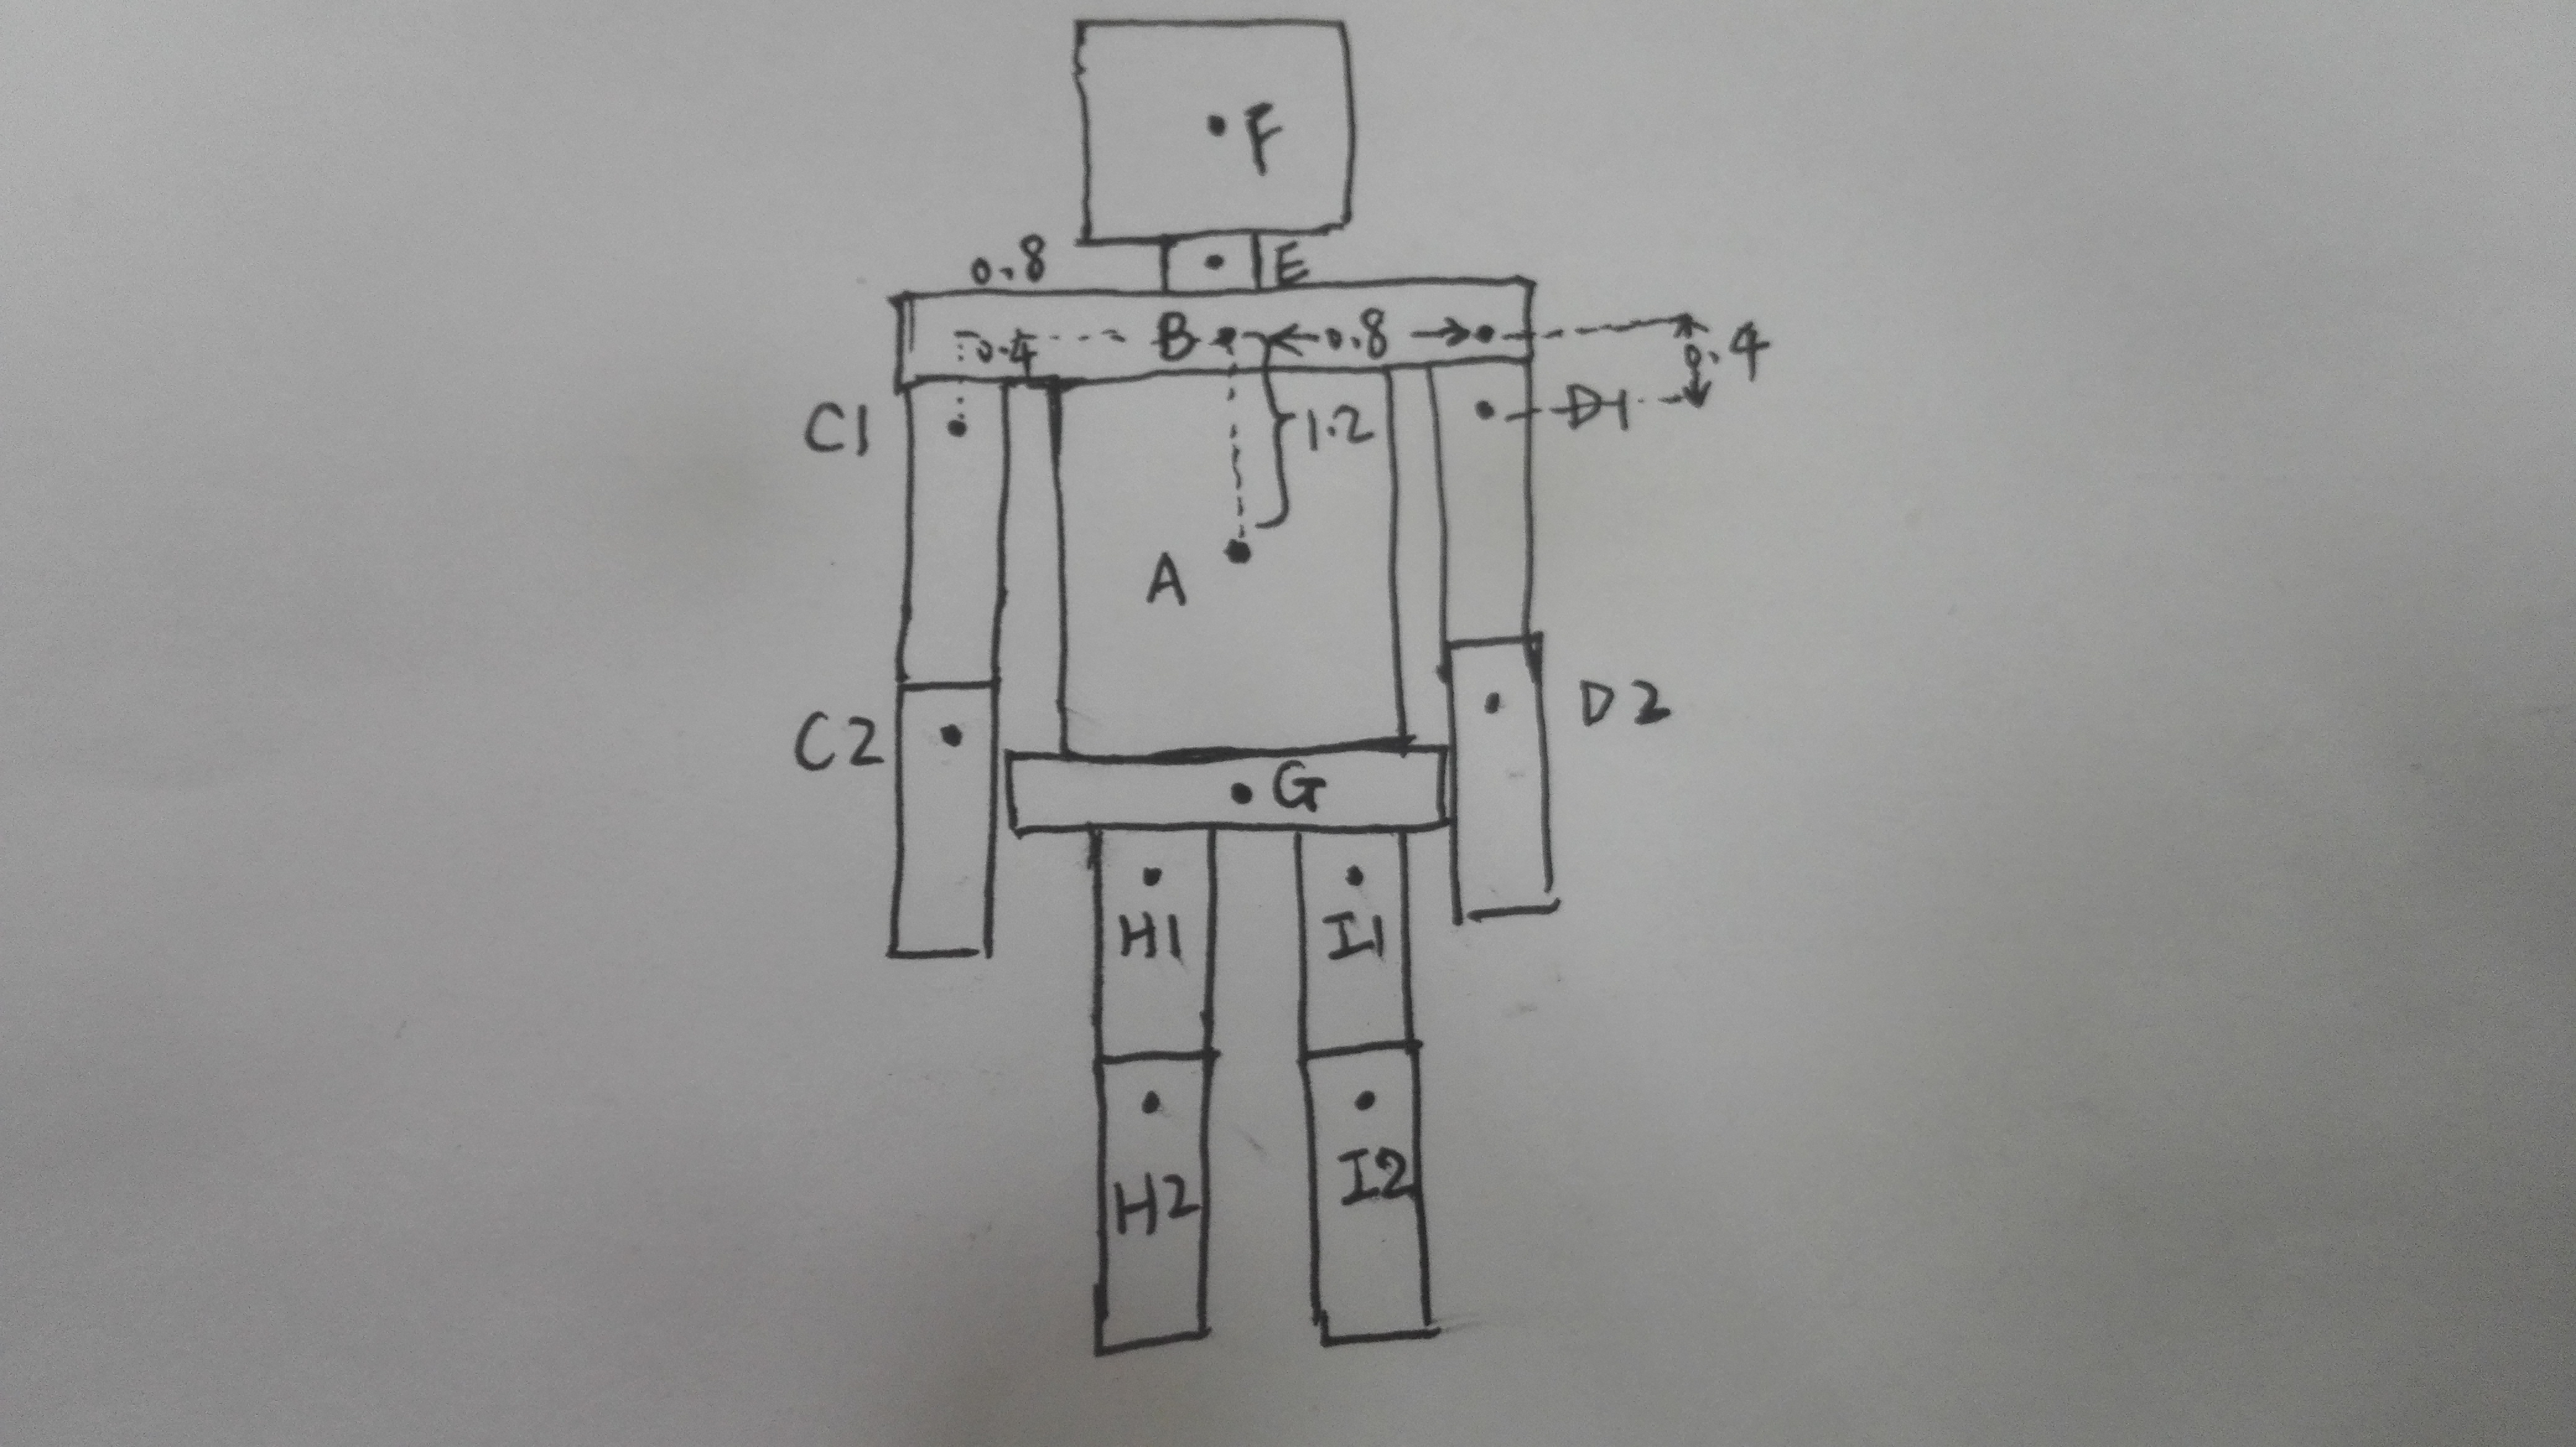 F
0.8
E
0.4
B
0.8
0.4
C1
1.2
D1
A
C2
D2
G
H1
I1
H2
I2